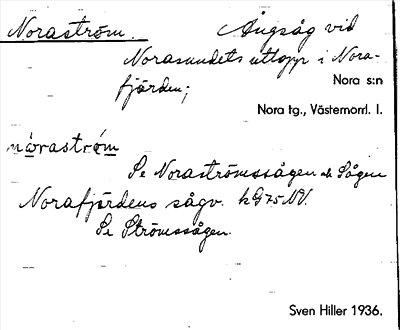 Noraström. Ångsåg vid
Norasundets utlopp i Nora-
fjärden;
Nora s:n
Nora tg., Västernorrl. l.
nòraström
Se Noraströmssågen och Sågen
Norafjärdens sågv. kG75NV.
Se Strömssågen.
Sven Hiller 1936.